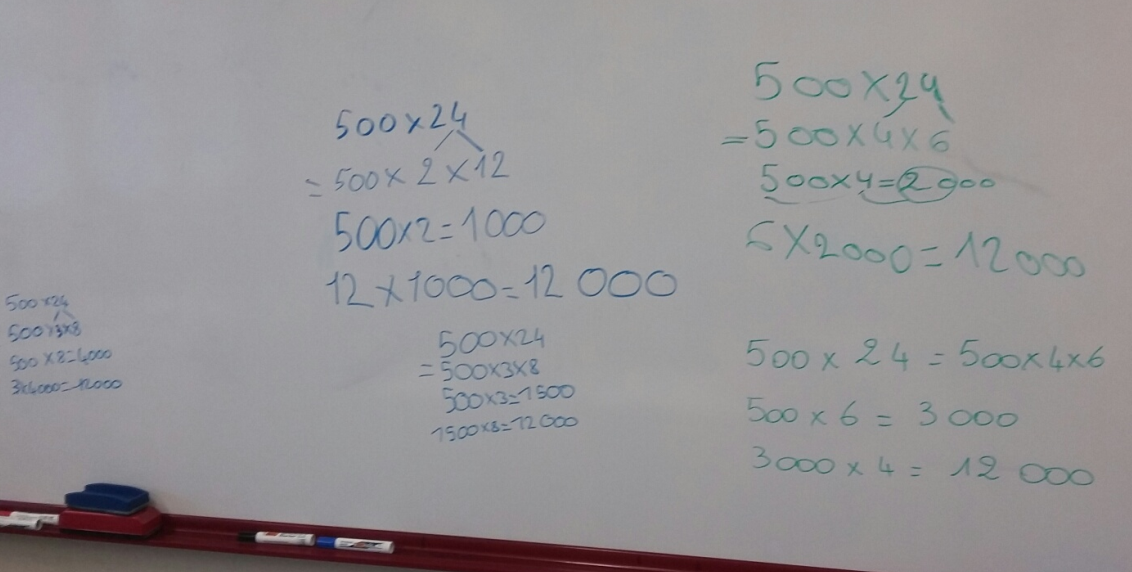 500×24
500×3×8
500×8=4000
3×4000=12000
500×24
=500×2×12
500×2=1000
12×1000=12 000
500×24
=500×3×8
500×3=1500
1500×8=12000
500×24
=500×4×6
500×4=2000
6×2000=12000
500×24=500×4×6
500×6=3 000
3000×4=12 000